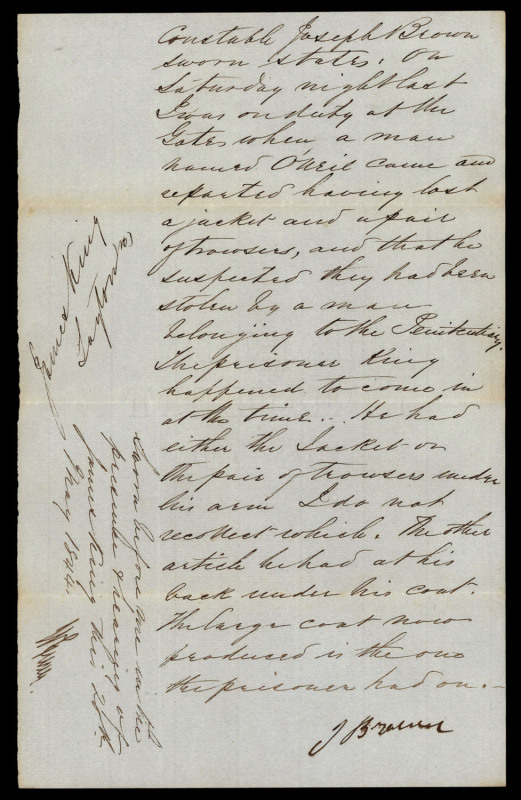 Constable Joseph Brown
sworn states. On
Saturday night last
I was on duty at the
Gates when a man
named O'Neil came and
reported having lost
a jacket and a pair
of trowsers, and that he
suspected they had been
stolen by a man
belonging to the Penitentiary.
The prisoner King
happened to come in
at the time. He had
either the Jacket or
the pair of trowsers under
his arm I do not
recollect which. The other
article he had at his
back under his coat.
The large coat now
produced is the one
the prisoner had on.
J Brown
James King
Sworn before me in the
presence & hearing of
James King this 20th
May 184